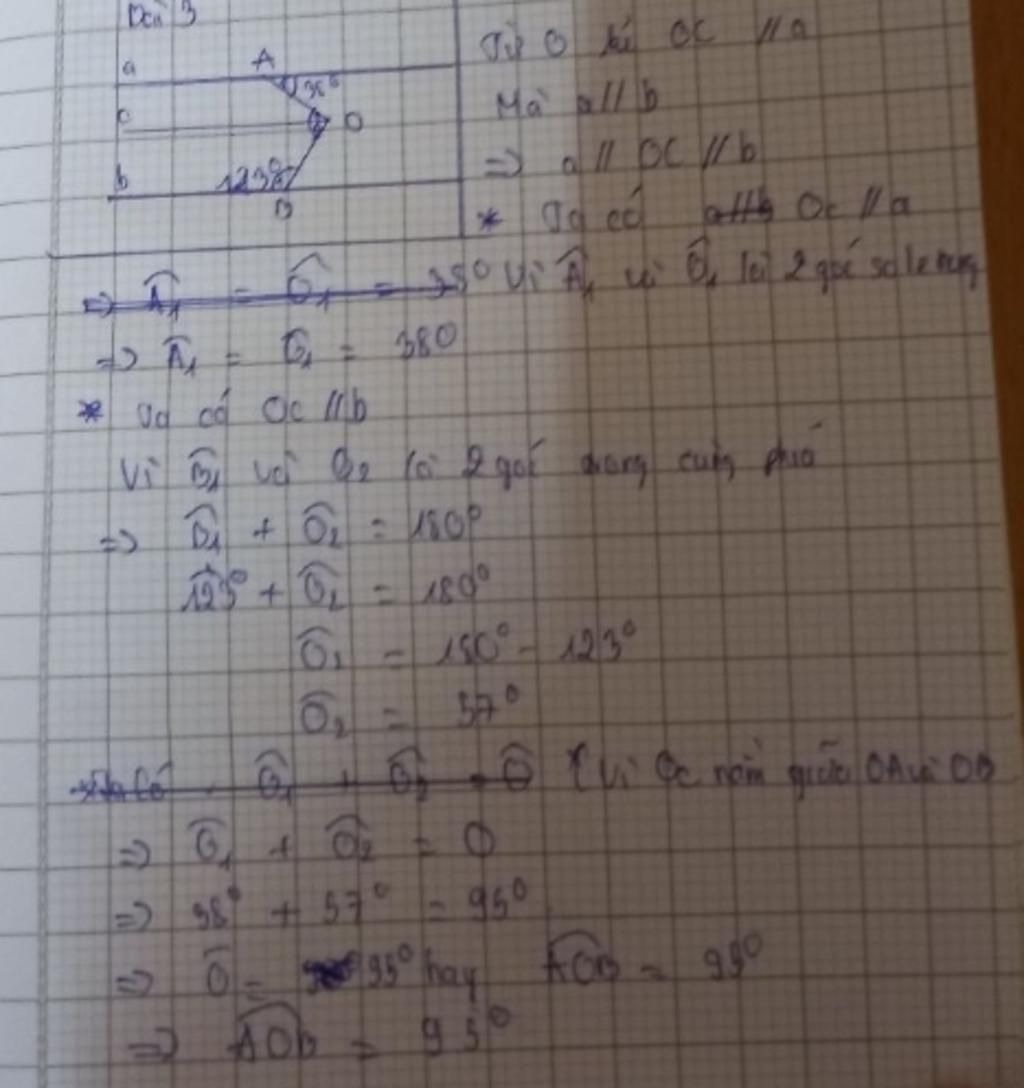 Bài 3
a A 38°
c O
b 123° B
Từ O kẻ OC // a
Mà a // b
=> a // OC // b
* Ta có a//b Oc // a
=> Â₁ = Ô₁ = 38° Vì Â₁ và Ô₁ là 2 góc so le trong
=> Â₁ = Ô₁ = 380
* Ta có Oc // b
Vì B̂₁ và O₂ là 2 góc trong cùng phía
=> B̂₁ + Ô₂ = 180°
123° + Ô₂ = 180°
Ô₂ = 180° - 123°
Ô₂ = 57°
Ta có Ô₁ + Ô₂ = Ô (Vì Oc nằm giữa OA và OB
=> Ô₁ + Ô₂ = O
=> 38° + 57° = 95°
=> Ô = 95° hay AOB = 95°
=> AOb = 95°